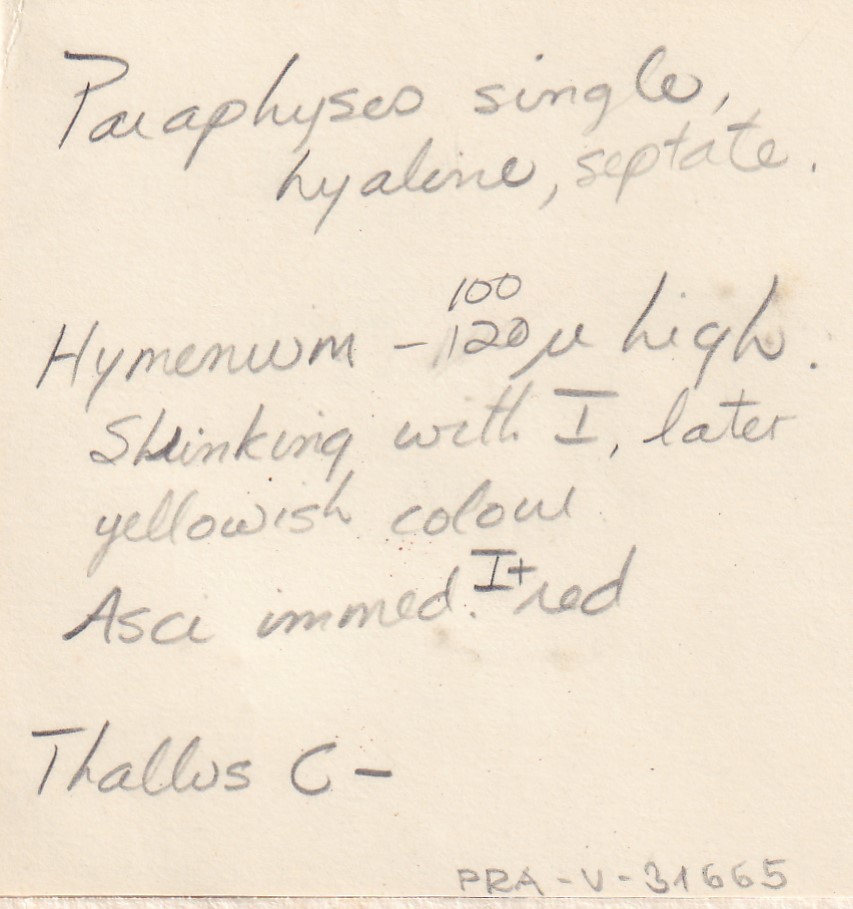 Paraphyses single,
hyaline, septate.
100
Hymenium - 120 µ high.
Shrinking with I, later
yellowish colour
Asci immed. I+ red
Thallus C -
PRA-V-31665